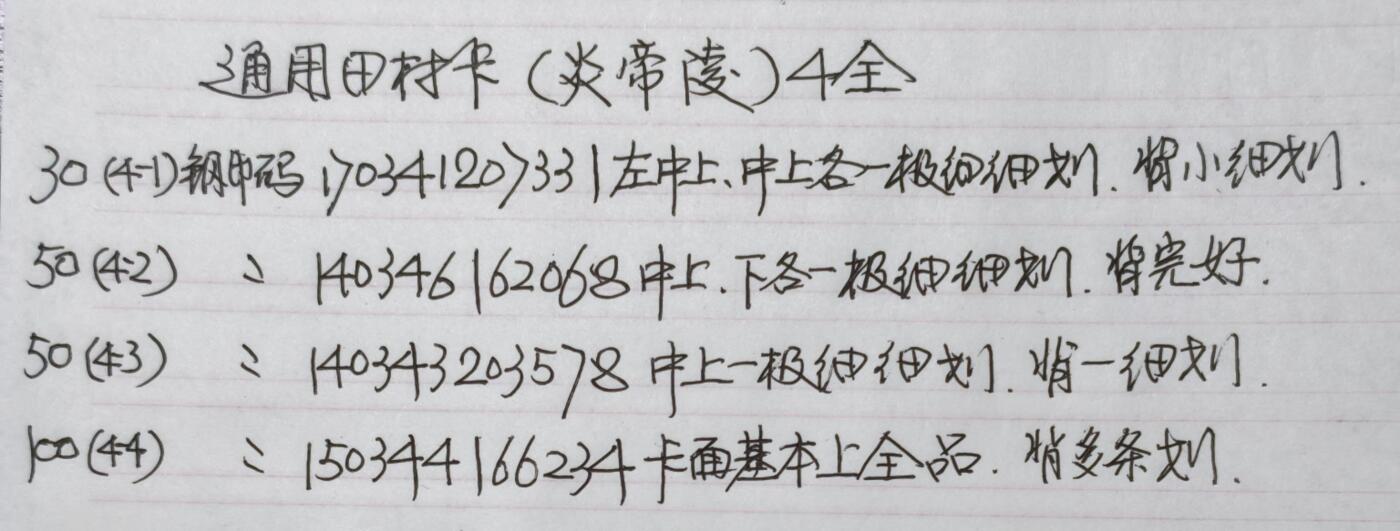 通用田村卡(炎帝陵)4全
30(4-1)钢印码170341207331左中上、中上各一极细细划.背小细划.
50(4-2) 〃 140346162068中上.下各一极细细划.背完好.
50(4-3) 〃 140343203578中上一极细细划.背一细划.
100(4-4) 〃 150344166234卡面基本上全品.背多条划.